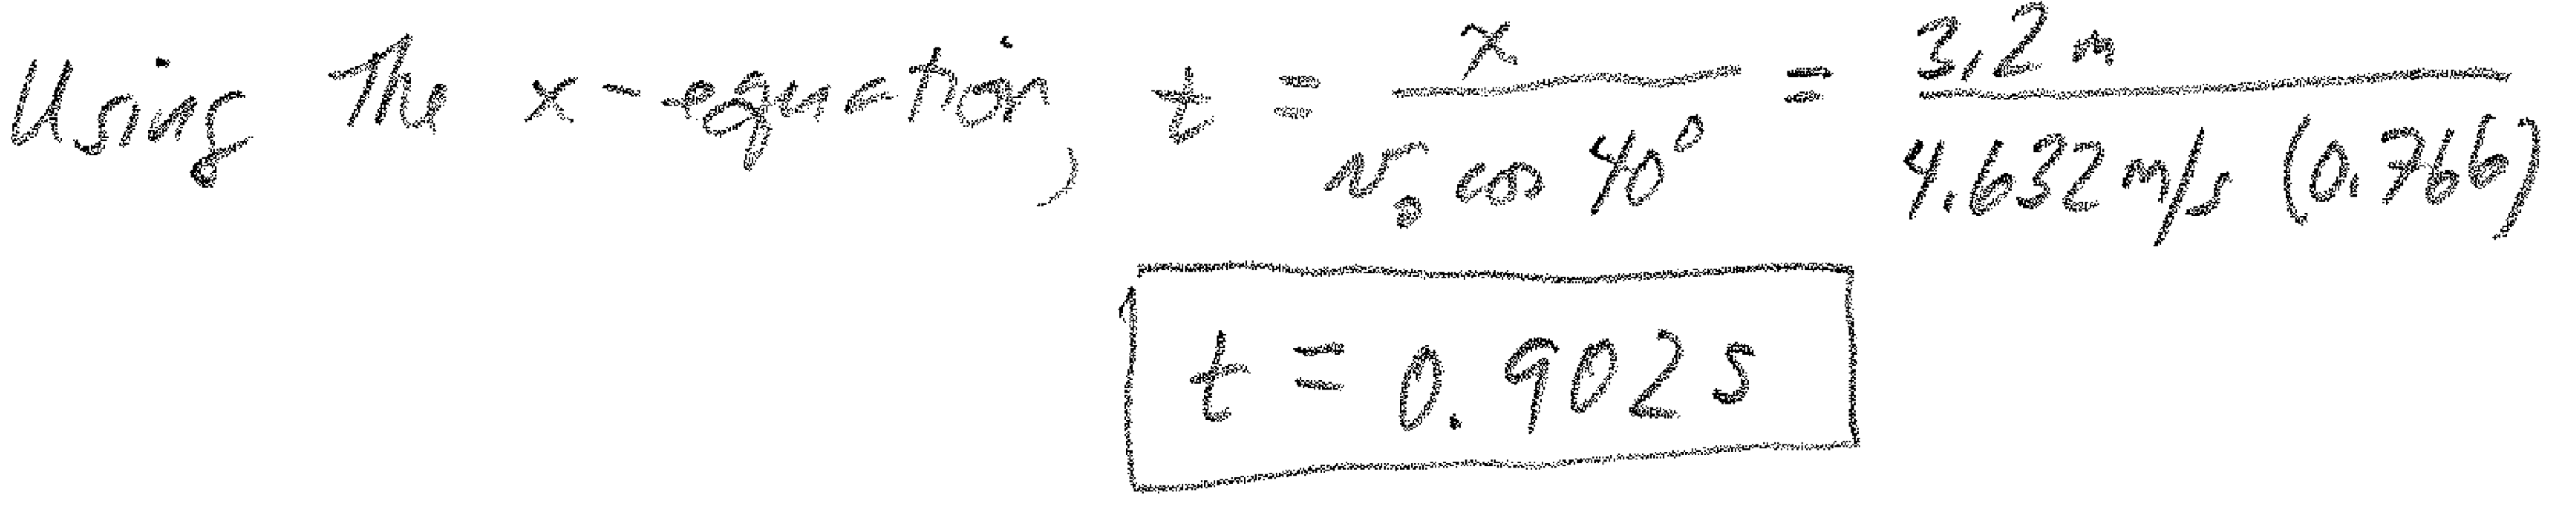 Using The x-equation, t = x / (v₀ cos 40°) = 3.2 m / (4.632 m/s (0.766))
t = 0.902 s